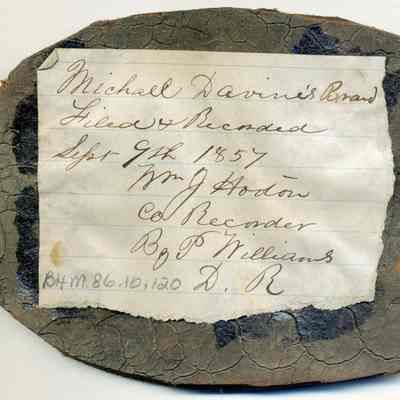 Michall Davine's Brand
Filed & Recorded
Sept 9th 1857
Wm J Hodon
Co Recorder
By P Williams
BHM.86.10.120 D. R